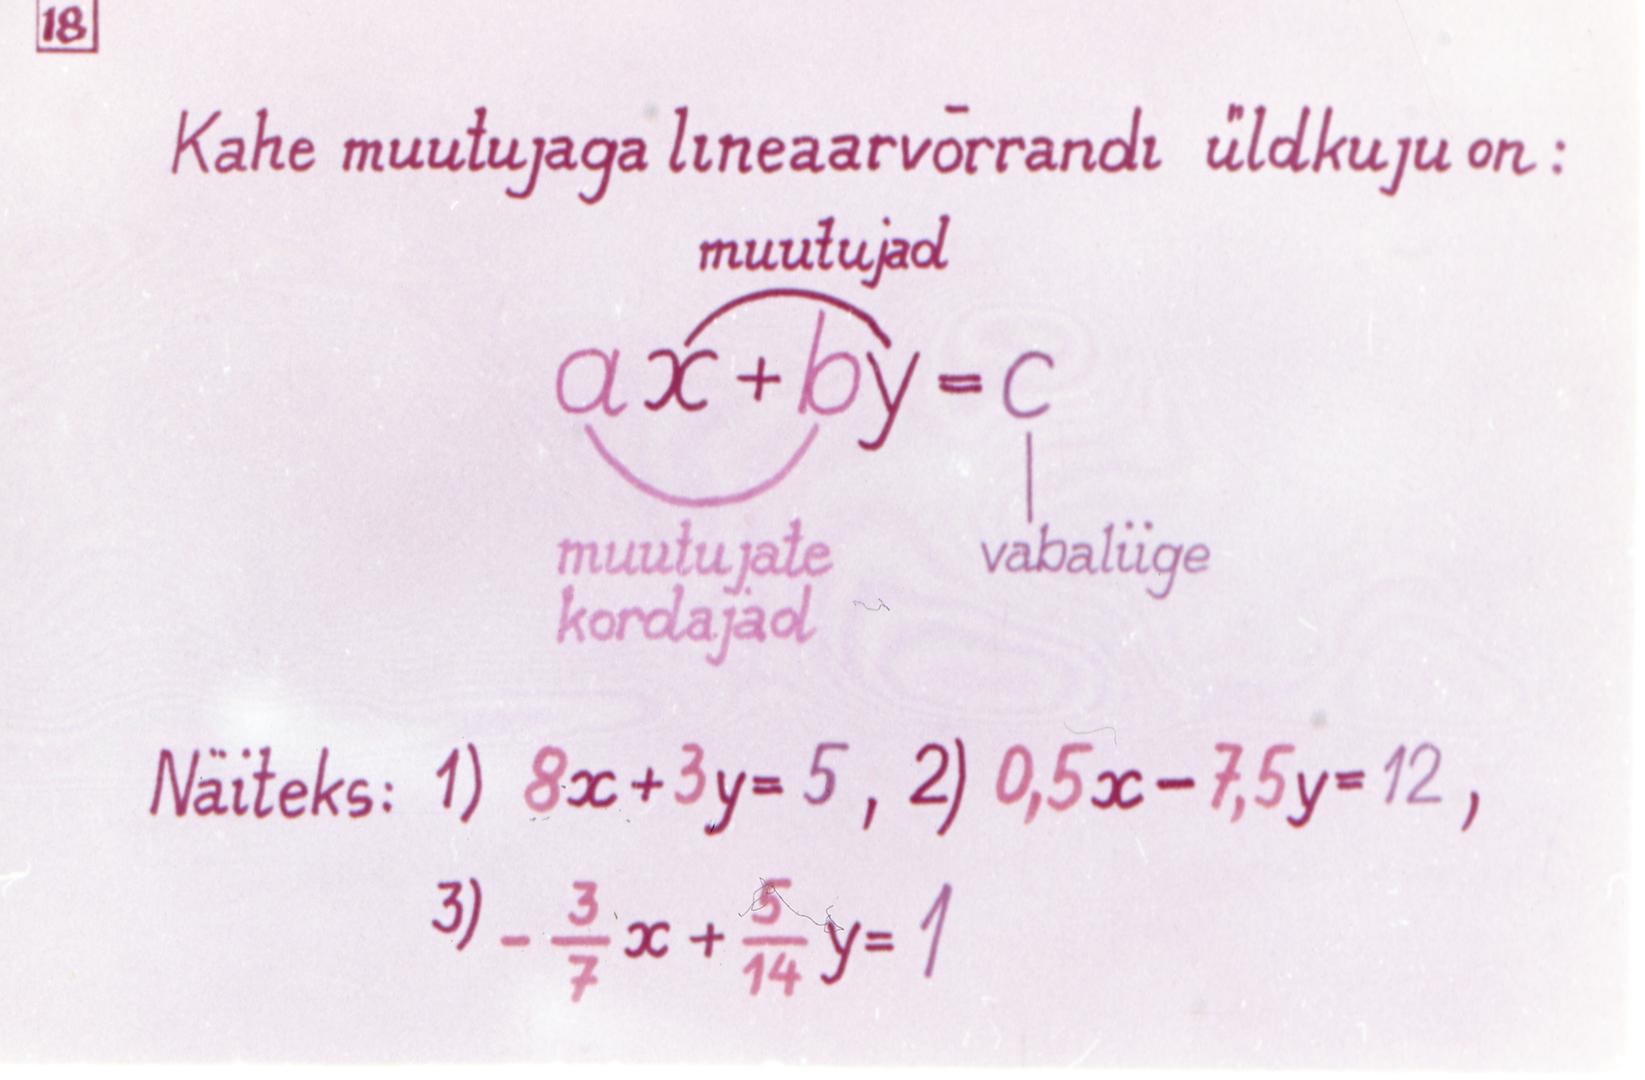 18
Kahe muutujaga lineaarvõrrandi üldkuju on:
muutujad
ax + by = c
muutujate
kordajad
vabaliige
Näiteks: 1) 8x + 3y = 5, 2) 0,5x - 7,5y = 12,
3) - 3/7 x + 5/14 y = 1